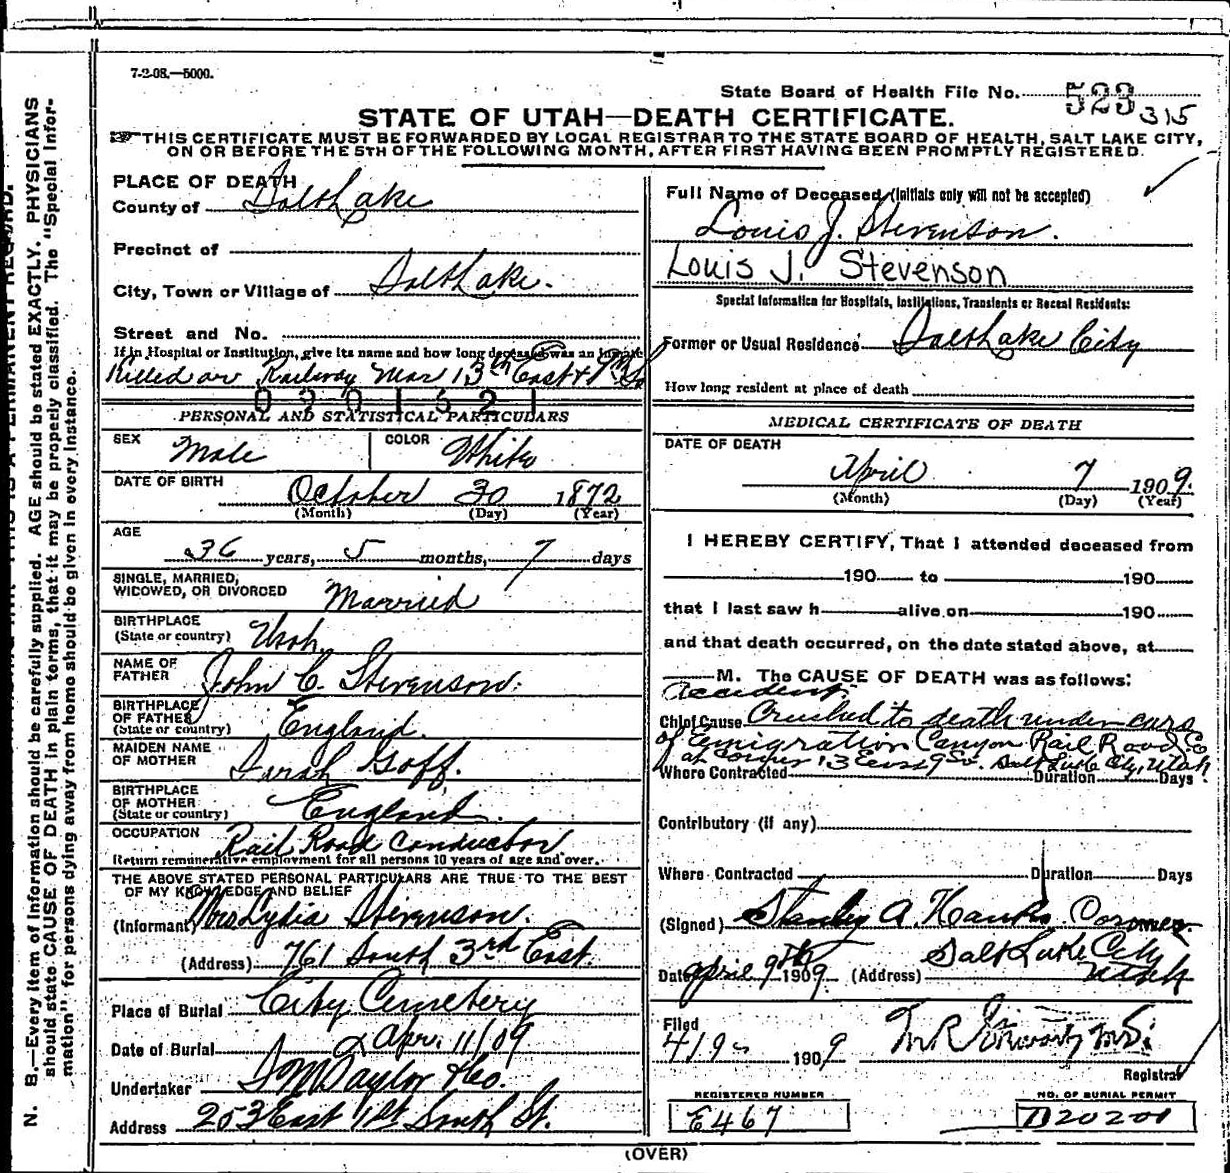 7-2-08.—5000.
State Board of Health File No. 523 315
STATE OF UTAH—DEATH CERTIFICATE.
THIS CERTIFICATE MUST BE FORWARDED BY LOCAL REGISTRAR TO THE STATE BOARD OF HEALTH, SALT LAKE CITY,
ON OR BEFORE THE 5TH OF THE FOLLOWING MONTH, AFTER FIRST HAVING BEEN PROMPTLY REGISTERED.
N. B.—Every item of information should be carefully supplied. AGE should be stated EXACTLY. PHYSICIANS
should state CAUSE OF DEATH in plain terms, that it may be properly classified. The "Special Infor-
mation" for persons dying away from home should be given in every instance.
PLACE OF DEATH
County of Salt Lake
Precinct of
City, Town or Village of Salt Lake.
Street and No.
If in Hospital or Institution, give its name and how long deceased was an inmate
Killed on Railway Mar 13th East & 9th So
PERSONAL AND STATISTICAL PARTICULARS
SEX Male COLOR White
DATE OF BIRTH October 30 1872
(Month) (Day) (Year)
AGE
36 years, 5 months, 7 days
SINGLE, MARRIED,
WIDOWED, OR DIVORCED Married
BIRTHPLACE
(State or country) Utah
NAME OF
FATHER John C. Stevenson.
BIRTHPLACE
OF FATHER
(State or country) England.
MAIDEN NAME
OF MOTHER Sarah Goff.
BIRTHPLACE
OF MOTHER
(State or country) England.
OCCUPATION Rail Road Conductor
Return remunerative employment for all persons 10 years of age and over.
THE ABOVE STATED PERSONAL PARTICULARS ARE TRUE TO THE BEST
OF MY KNOWLEDGE AND BELIEF
(Informant) Mrs Lydia Stevenson.
(Address) 761 South 3rd East.
Place of Burial City Cemetery
Date of Burial Apr. 11/09
Undertaker S M Taylor & Co.
Address 253 East 1st South St.
Full Name of Deceased (Initials only will not be accepted)
Louis J. Stevenson.
Louis J. Stevenson
Special Information for Hospitals, Institutions, Transients or Recent Residents:
Former or Usual Residence Salt Lake City
How long resident at place of death
MEDICAL CERTIFICATE OF DEATH
DATE OF DEATH
April 7 1909.
(Month) (Day) (Year)
I HEREBY CERTIFY, That I attended deceased from
190 to 190
that I last saw h alive on 190
and that death occurred, on the date stated above, at
M. The CAUSE OF DEATH was as follows:
Accident.
Chief Cause Crushed to death under cars
of Emigration Canyon Rail Road Co
at corner 13 East 9 So. Salt Lake City, Utah
Where Contracted Duration Days
Contributory (if any)
Where Contracted Duration Days
(Signed) Stanley A. Hanks Coroner
Date April 9th 1909 (Address) Salt Lake City
Utah
Filed
4/9 1909 M.D.
Registrar
REGISTERED NUMBER
E467
NO. OF BURIAL PERMIT
B20200
(OVER)